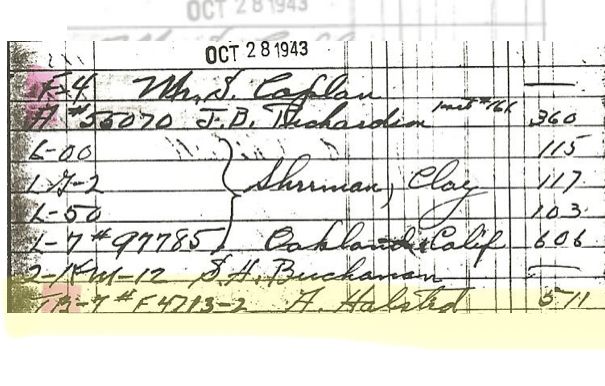 OCT 28 1943
OCT 28 1943
K-4 Mr. S. Caplan —
A #55070 J.B. Richardson 360
L-00 115
1 G-2 Sherman, Clay 117
L-50 103
L-7 #97785 Oakland Calif 606
2-1 KM-12 S.H. Buchanan —
TB-7 #F4713-2 A. Halsted 511